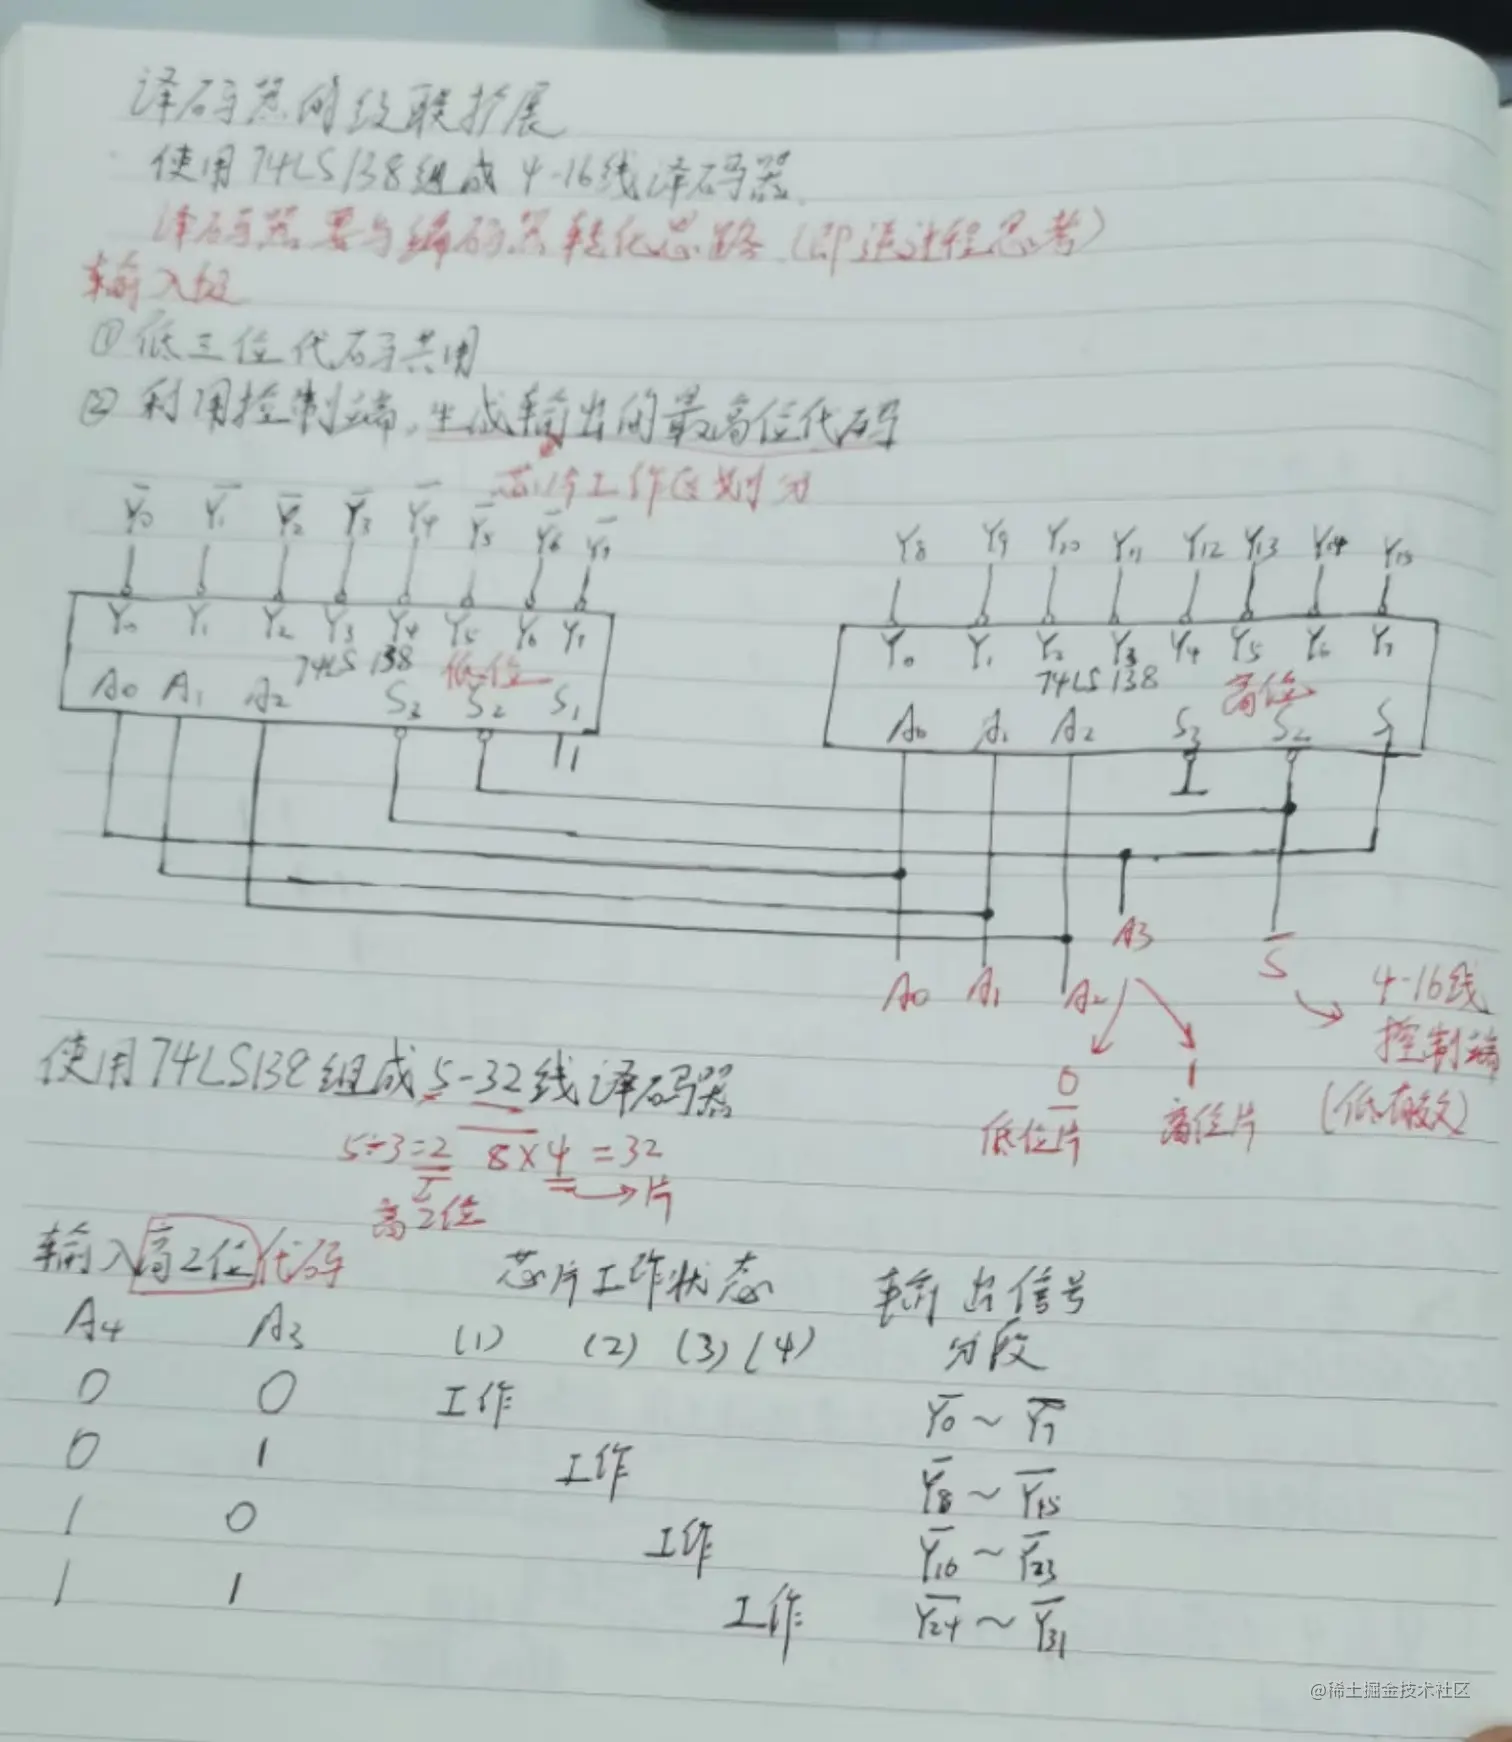 译码器的级联扩展
使用74LS138组成 4-16线译码器.
译码器要与编码器转化思路.(即逆过程思考)
输入级
①低三位代码共用
②利用控制端,生成输出的最高位代码
芯片工作区划分
Y̅0 Y̅1 Y̅2 Y̅3 Y̅4 Y̅5 Y̅6 Y̅7
Y8 Y9 Y10 Y11 Y12 Y13 Y14 Y15
Y0 Y1 Y2 Y3 Y4 Y5 Y6 Y7
74LS 138 低位
A0 A1 A2 S3 S2 S1
Y0 Y1 Y2 Y3 Y4 Y5 Y6 Y7
74LS 138 高位
A0 A1 A2 S3 S2 S
A0 A1 A2 A3 S̅
0 1
低位片 高位片
4-16线
控制端
(低有效)
使用74LS138组成5-32线译码器
5÷3=2 8×4=32
高2位 片
输入高2位代码 芯片工作状态 输出信号
A4 A3 (1) (2) (3) (4) 分段
0 0 工作 Y̅0~Y̅7
0 1 工作 Y̅8~Y̅15
1 0 工作 Y̅16~Y̅23
1 1 工作 Y̅24~Y̅31
@稀土掘金技术社区